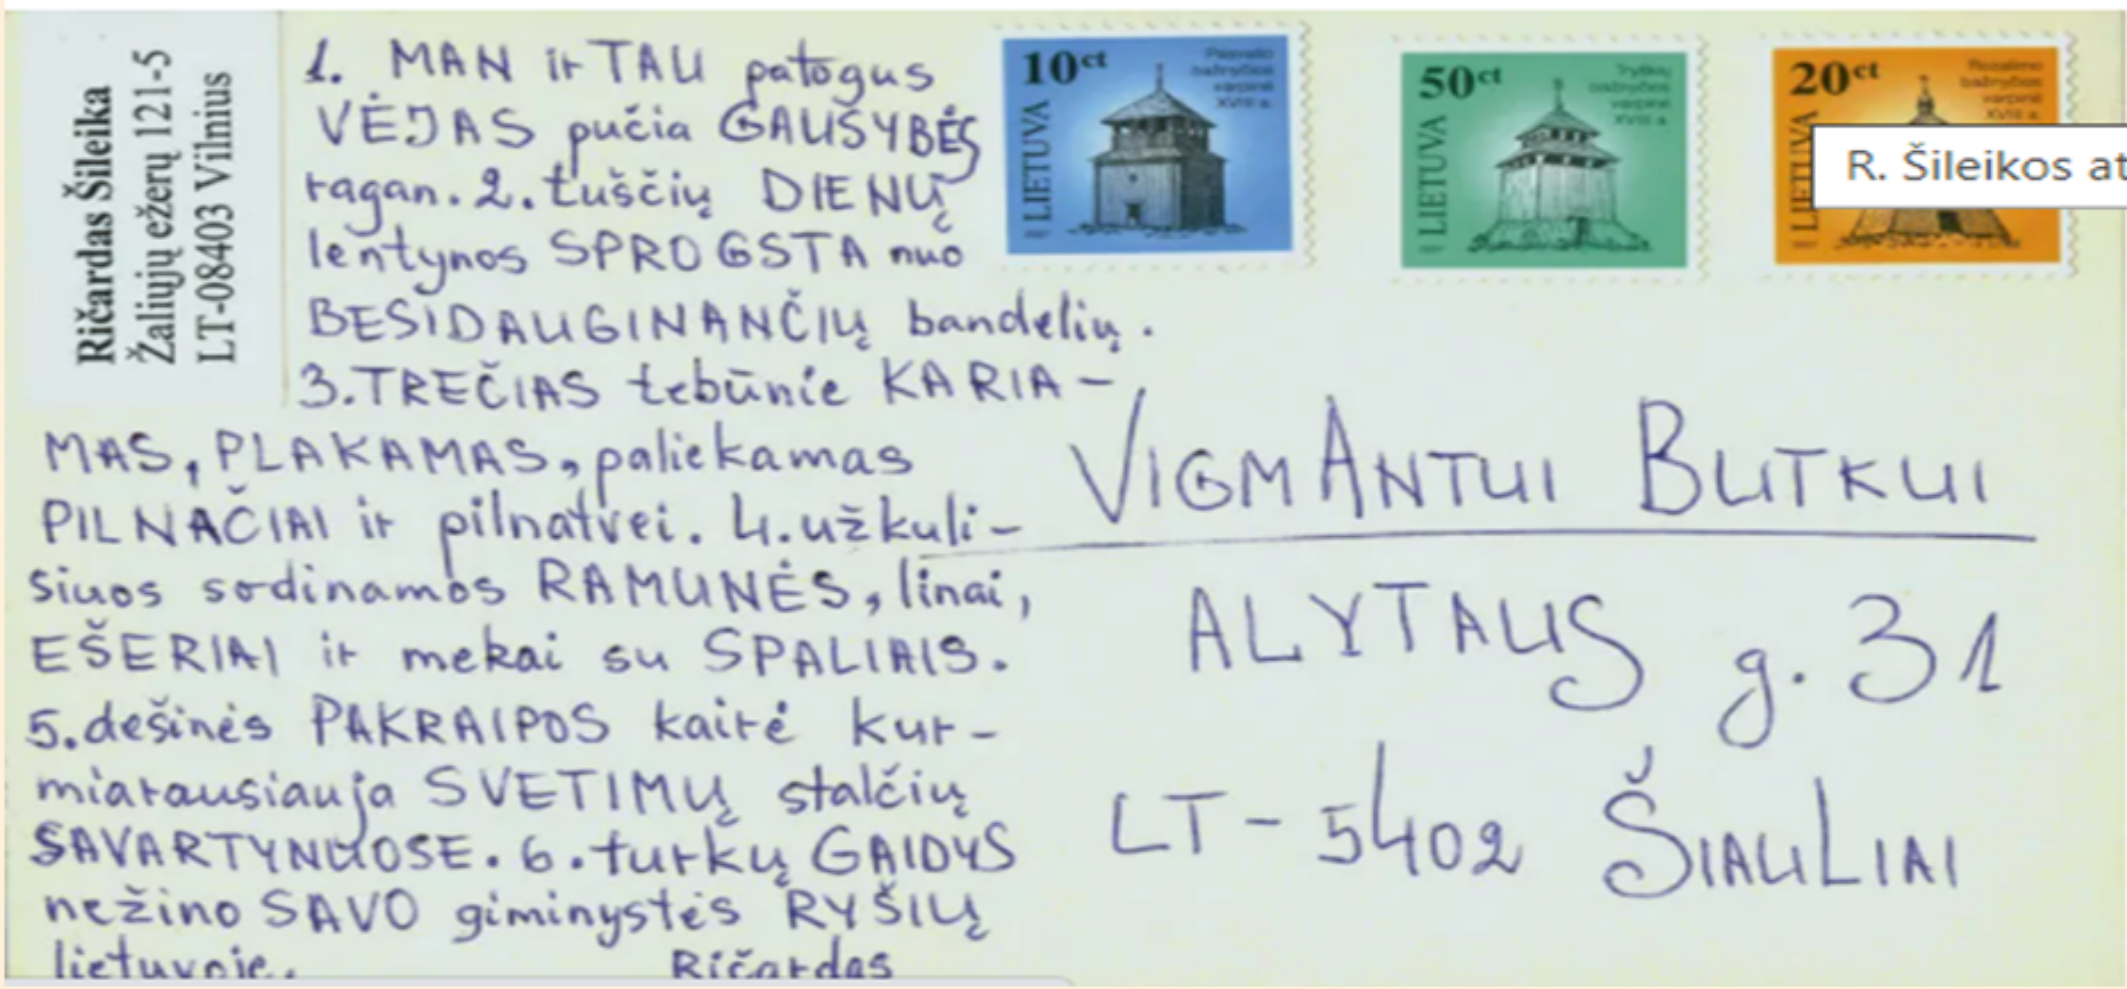 Ričardas Šileika
Žaliųjų ežerų 121-5
LT-08403 Vilnius
1. MAN ir TAU patogus
VĖJAS pučia GAUSYBĖS
ragan. 2. tuščių DIENŲ
lentynos SPROGSTA nuo
BESIDAUGINANČIŲ bandelių.
3. TREČIAS tebūnie KARIA-
MAS, PLAKAMAS, paliekamas
PILNAČIAI ir pilnatvei. 4. užkuli-
siuos sodinamos RAMUNĖS, linai,
EŠERIAI ir mekai su SPALIAIS.
5. dešinės PAKRAIPOS kairė kur-
miarausiauja SVETIMŲ stalčių
SAVARTYNUOSE. 6. turkų GAIDYS
nežino SAVO giminystės RYŠIŲ
lietuvoje.
Ričardas
10ct
LIETUVA
bažnyčios
varpinė
XVIII a.
50ct
LIETUVA
Tryškių
bažnyčios
varpinė
XVIII a.
20ct
LIETUVA
Rozalimo
bažnyčios
varpinė
XVIII a.
R. Šileikos at
VIGMANTUI BUTKUI
ALYTAUS g. 31
LT-5402 ŠIAULIAI